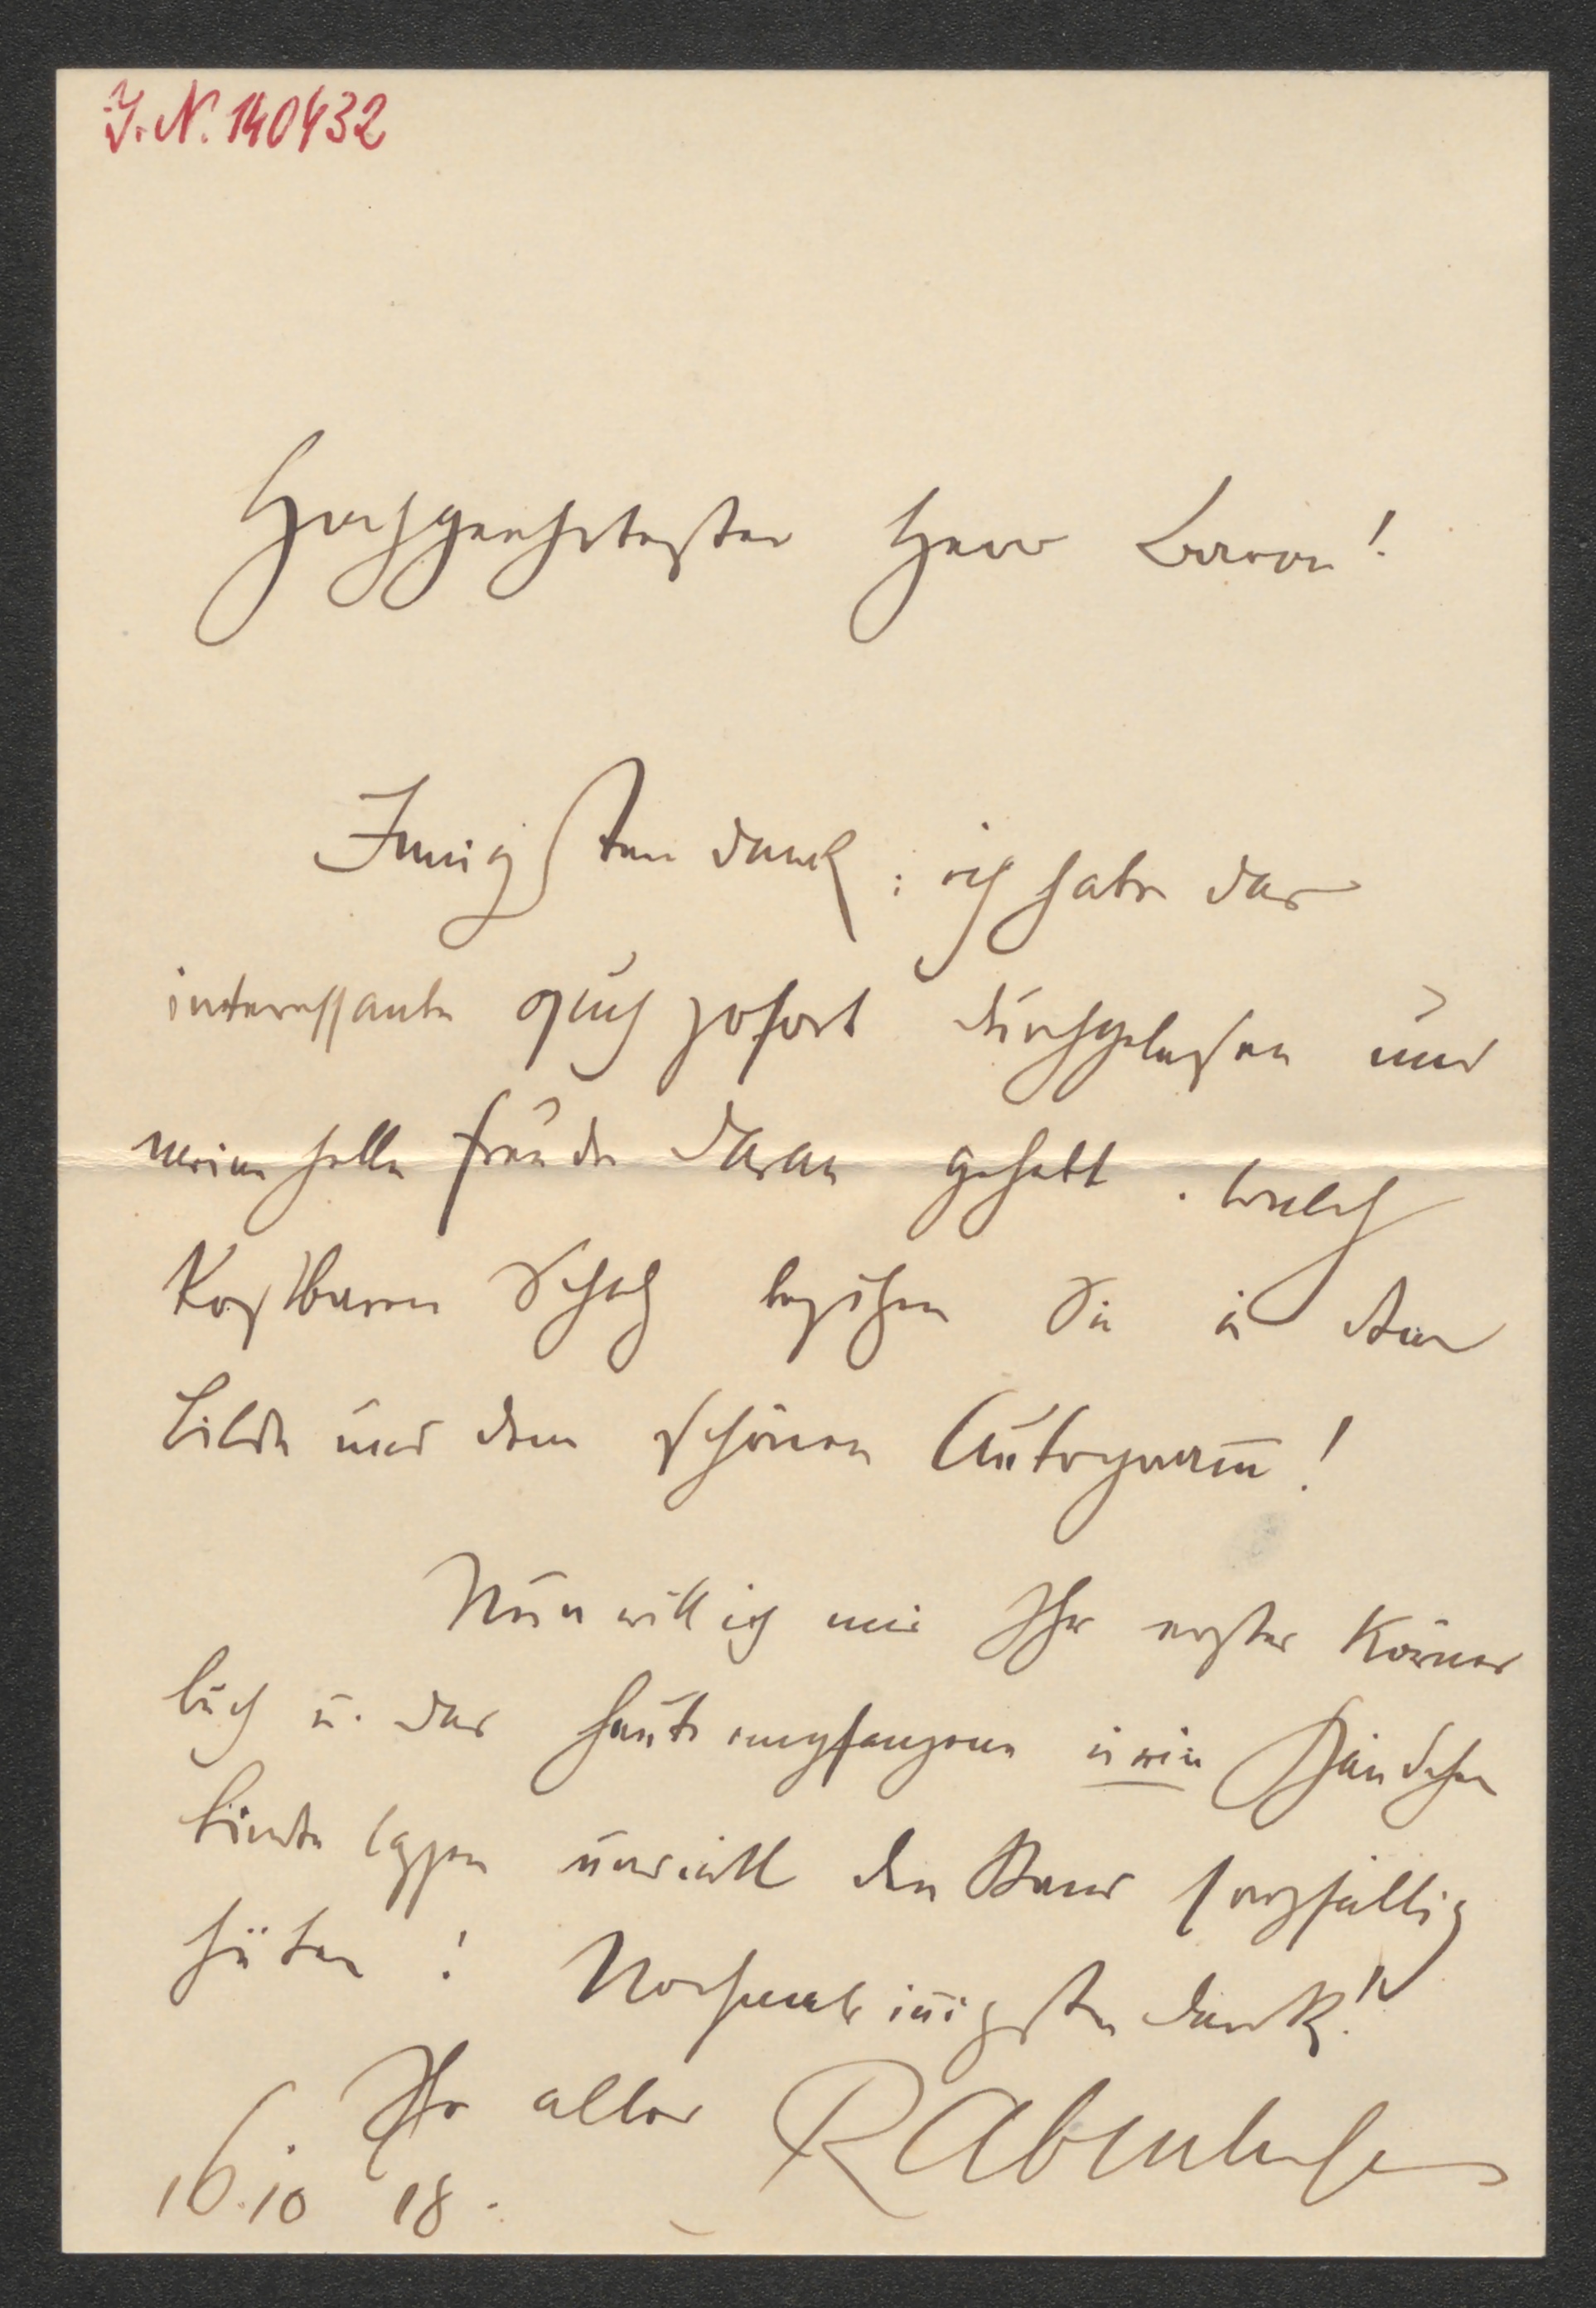 J. N. 140432
Hochgeehrtester Herr Baron!
Innigsten Dank: ich habe das
interessante Buch sofort durchgelesen und
meine helle Freude daran gehabt. Welch
kostbaren Schatz besitzen Sie in dem
Bilde und dem schönen Autogram̅!
Nun will ich mir Ihr erstes Körner
buch u. das heute empfangene in ein Bändchen
binden lassen und will den Band sorgfältig
hüten! Nochmals in̅igsten Dank!
Ihr alter RAbenlechner
16.10 18.